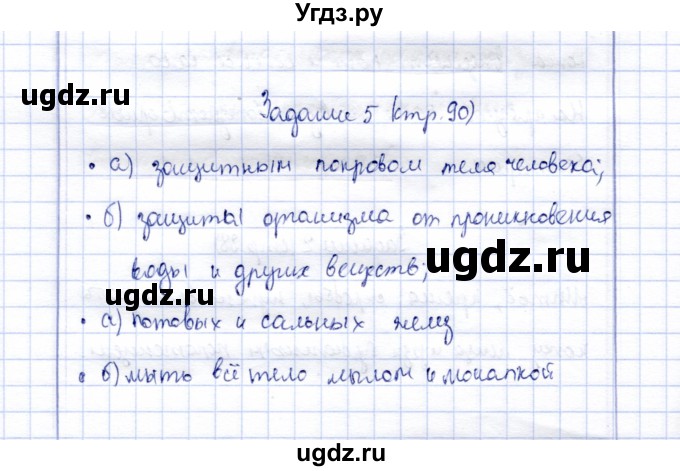 Угдз.ру
ugdz.ru
ugdz.ru
Задание 5 (стр. 90)
• а) защитным покровом тела человека;
ugdz.ru
• б) защиты организма от проникновения
ugdz.ru
воды и других веществ;
ugdz.ru
• а) потовых и сальных желез
ugdz.ru
• б) мыть всё тело мылом и мочалкой
ugdz.ru
ugdz.ru